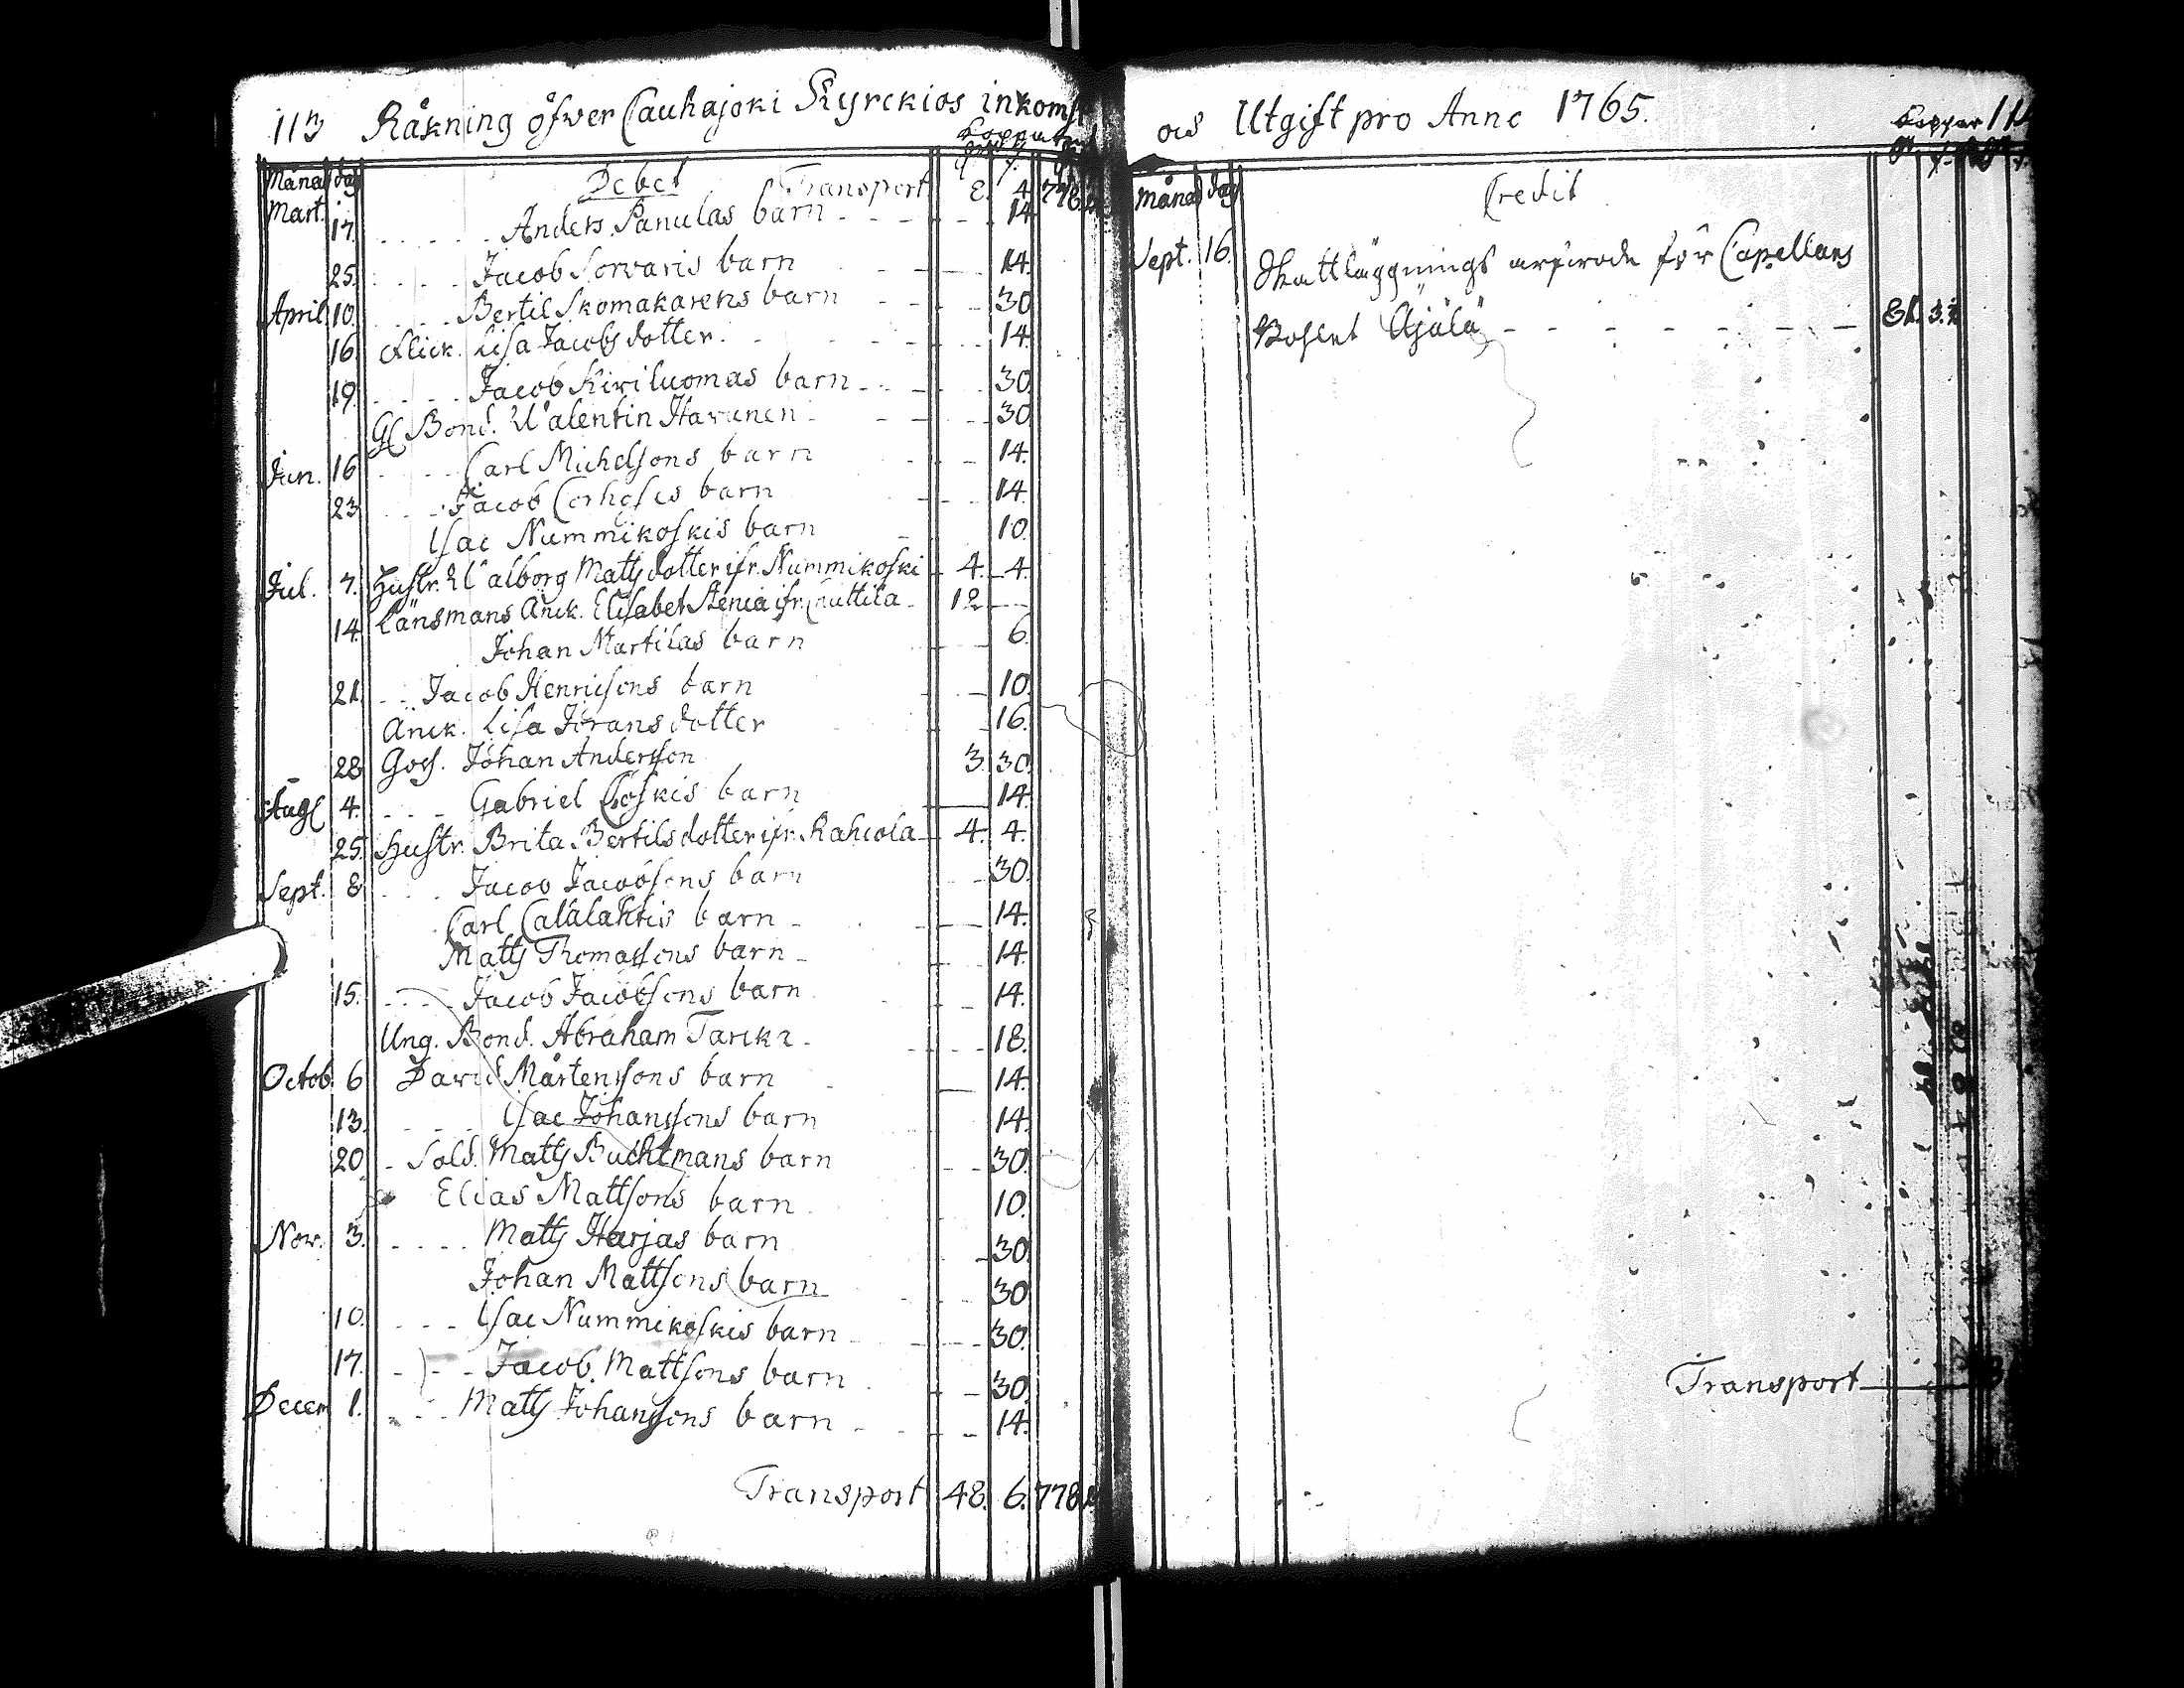 113 Räkning öfwer Cauhajoki Kyrckios inkomst
Koppar
Månad dag Debet Transport 8. 4. 778
Mart. 17. Anders Panulas barn 14.
25. Jacob Sorvaris barn 14.
April 10. Bertil Skomakarens barn 30
16. Flick. Lisa Jacobsdotter 14.
19. Jacob Kiviluomas barn 30.
Gl. Bond. Walentin Havunen 30
Jun. 16 Carl Michelsons barn 14.
23. Jacob Corhosis barn 14.
Isac Nummikoskis barn 10.
Jul. 7. Hustr. Walborg Mattsdotter ifr. Nummikoski 4. 4.
14. Länsmans Änck. Elisabet Stenia ifr. 12
Johan Martilas barn 6.
21. Jacob Henricsons barn 10.
Änck. Lisa Jöransdotter 16.
28 Goss. Johan Andersson 3. 30.
Aug. 4. Gabriel Coskis barn 14.
25. Hustr. Brita Bertilsdotter ifr. Rahcola 4. 4.
Sept. 8 Jacob Jacobsons barn 30.
Carl Calalahtis barn 14.
Matts Thomassons barn 14.
15. Jacob Jacobsons barn 14.
Ung. Bond. Abraham Tarcka 18.
Octob. 6 David Mårtenssons barn 14.
13. Isac Johanssons barn 14.
20 Sold. Matts Buchtmans barn 30.
Elias Mattsons barn 10.
Nov. 3. Matts Harjas barn 30.
Johan Mattsons barn 30
10. Isac Nummikoskis barn 30.
17. Jacob Mattsons barn 30.
Decem 1. Matts Johanssons barn 14.
Transport 48. 6. 778
och Utgift pro Anno 1765.
Koppar 114
Månad dag Credit
Sept. 16. Skattläggnings arfwode för Capellans
Bohlet Äjälä
Transport